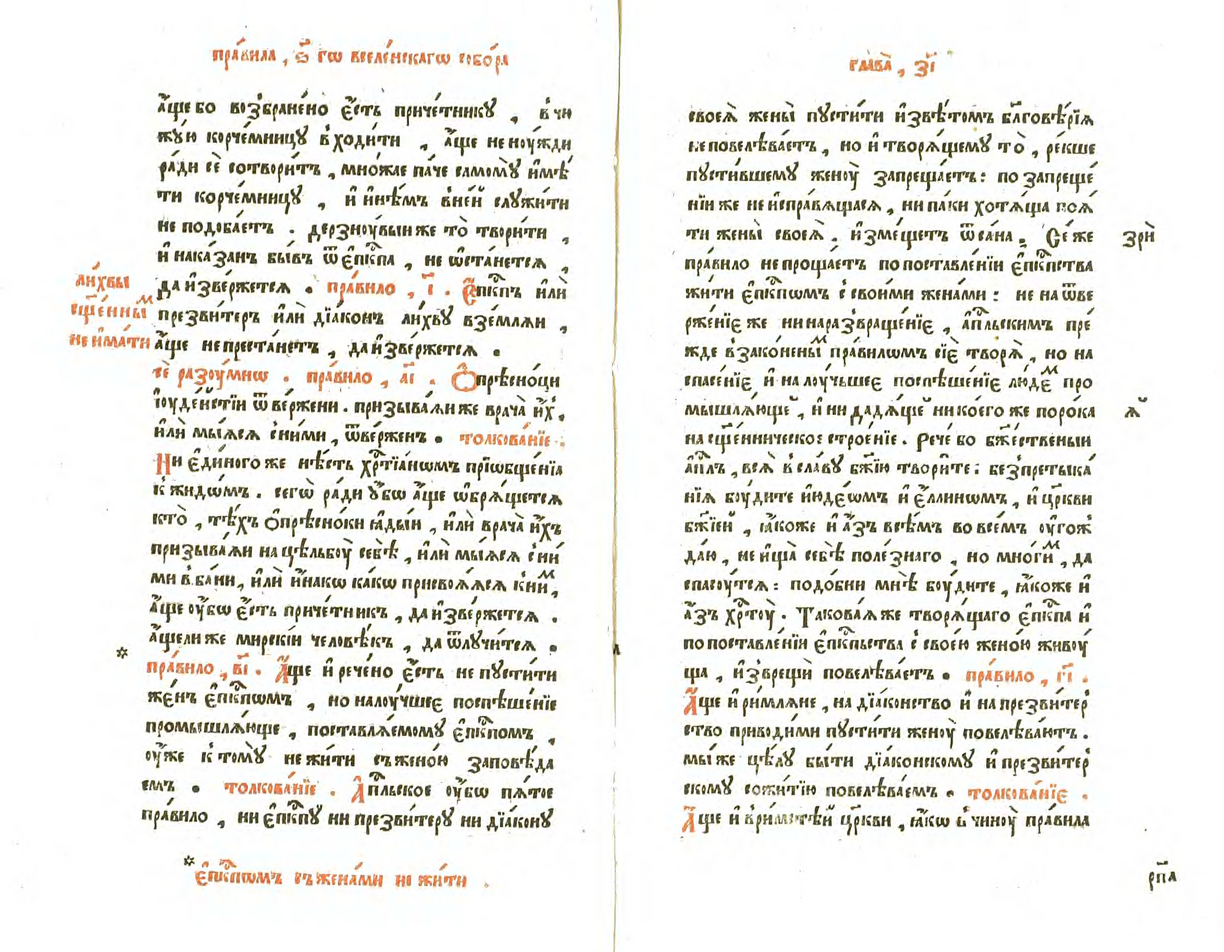 пра́вила, ѕ҃ гѡ вселе́нскагѡ собо́ра
а҆́ще бо возбране́но є҆́сть приче́тникꙋ, в чи
жꙋ́ю корче́мницꙋ входи́ти, а҆́ще не ноу́жди
ра́ди сѐ сотвори́тъ, мно́жае па́че самомꙋ̀ и҆мѣ́
ти корче́мницꙋ, и҆ и҆нѣ́мъ в не́й слꙋжи́ти
не подоба́етъ. дерзноу́выи же то̀ твори́ти,
и҆ нака́занъ бы́въ ѿ є҆пⷭ҇кпа, не ѡ҆ста́нетсѧ,
да и҆зве́ржетсѧ. пра́вило, і҃. Є҆пⷭ҇кпъ и҆лѝ
ли́хвы
сщ҃е́ннымъ
не и҆ма́ти
презви́теръ и҆лѝ дїа́конъ ли́хвꙋ взе́млѧи,
а҆́ще не преста́нетъ, да и҆зве́ржетсѧ.
сѐ разоу́мно. пра́вило, а҃і. Ѻ҆прѣсно́цы
і҆оуде́йстїи ѿве́ржени. призыва́ѧи же врача̀ и҆́хъ,
и҆лѝ мы́ѧсѧ с ни́ми, ѿве́рженъ. толкова́нїе.
Ни є҆ди́ного же нѣ́сть хрⷭ҇тїа́нѡмъ прїѡбще́нїа
к жидѡ́мъ. сегѡ̀ ра́ди ᲂу҆́бѡ а҆́ще ѡ҆брѧ́щетсѧ
кто̀, тѣ́хъ ѻ҆прѣсно́ки ꙗ҆ды́и, и҆лѝ врача̀ и҆́хъ
призыва́ѧи на цѣльбоу̀ себѣ̀, и҆лѝ мы́ѧсѧ с ни́
ми в ба́ни, и҆лѝ и҆́накѡ ка́кѡ присвоѧ́ѧсѧ к ни́мъ,
а҆́ще ᲂу҆́бѡ є҆́сть приче́тникъ, да и҆зве́ржетсѧ.
а҆́ще ли же мирскі́и человѣ́къ, да ѿлꙋчи́тсѧ.
пра́вило, в҃і. А҆́ще и҆ рече́но є҆́сть не пꙋсти́ти
же́нъ є҆пⷭ҇кпѡмъ, но на лоу́чшее поспѣше́нїе
промышлѧ́юще, поставлѧ́емомꙋ є҆пⷭ҇кпомъ,
ᲂу҆же к томꙋ̀ не жи́ти съ жено́ю заповѣ́да
емъ. толкова́нїе. А҆пⷭ҇льское ᲂу҆́бѡ пѧ́тое
пра́вило, ни є҆пⷭ҇кпꙋ ни презви́терꙋ ни дїа́конꙋ
є҆пⷭ҇кпѡмъ съ жена́ми не жи́ти.
глава̀, з҃і
своеѧ̀ жены̀ пꙋсти́ти и҆звѣ́томъ бл҃говѣ́рїѧ
не повелѣва́етъ, но и҆ творѧ́щемꙋ то̀, ре́кше
пꙋсти́вшемꙋ женоу̀ запреща́етъ: по запреще́
нїи же не и҆справѧ́щасѧ, ни па́ки хотѧ́ща поѧ́
ти жены̀ своеѧ̀, и҆зме́щетъ ѿ са́на. Се́ же
зрѝ
пра́вило не проща́етъ по поставле́нїи є҆пⷭ҇кпства
жи́ти є҆пⷭ҇кпѡмъ с свои́ми жена́ми: не на ѿве
рже́нїе же ни на развраще́нїе, а҆пⷭ҇льскимъ пре́
жде в зако́неныхъ пра́вилѡмъ сїѐ творѧ̀, но на
спасе́нїе, и҆ на лоу́чьшее поспѣше́нїе люде́мъ про
мышлѧ́юще, и҆ ни дадѧ́ще ни ко́его же поро́ка
на сщ҃е́нническое строе́нїе. Рече́ бо бж҃е́ственыи
а҆пⷭ҇лъ, всѧ̀ в сла́вꙋ бж҃їю твори́те: без претыка́
нїѧ боу́дите и҆юде́ѡмъ и҆ є҆́ллинѡмъ, и҆ цр҃кви
бж҃їей, ꙗ҆́коже и҆ а҆́зъ всѣ́мъ во все́мъ ᲂу҆гож
да́ю, не и҆ща̀ себѣ̀ поле́знаго, но мно́гимъ, да
спасоу́тсѧ: подо́бни мнѣ̀ боу́дите, ꙗ҆́коже и҆
а҆́зъ хрⷭ҇тоу̀. Такова́ѧ же творѧ́щаго є҆пⷭ҇кпа и҆
по поставле́нїи є҆пⷭ҇кпьства с свое́ю жено́ю живоу́
ща, и҆зврещѝ повелѣва́етъ. пра́вило, г҃і.
А҆́ще и҆ ри́млѧне, на дїа́конство и҆ на презви́тер
ство приводи́ми пꙋсти́ти женоу̀ повелѣва́ютъ.
мы́ же цѣ́лꙋ бы́ти дїа́конскомꙋ и҆ презви́тер
скомꙋ сожи́тїю повелѣва́емъ. толкова́нїе.
А҆́ще и҆ в ри́мстѣй цр҃кви, ꙗ҆́кѡ в чиноу̀ пра́вила
рп҃а